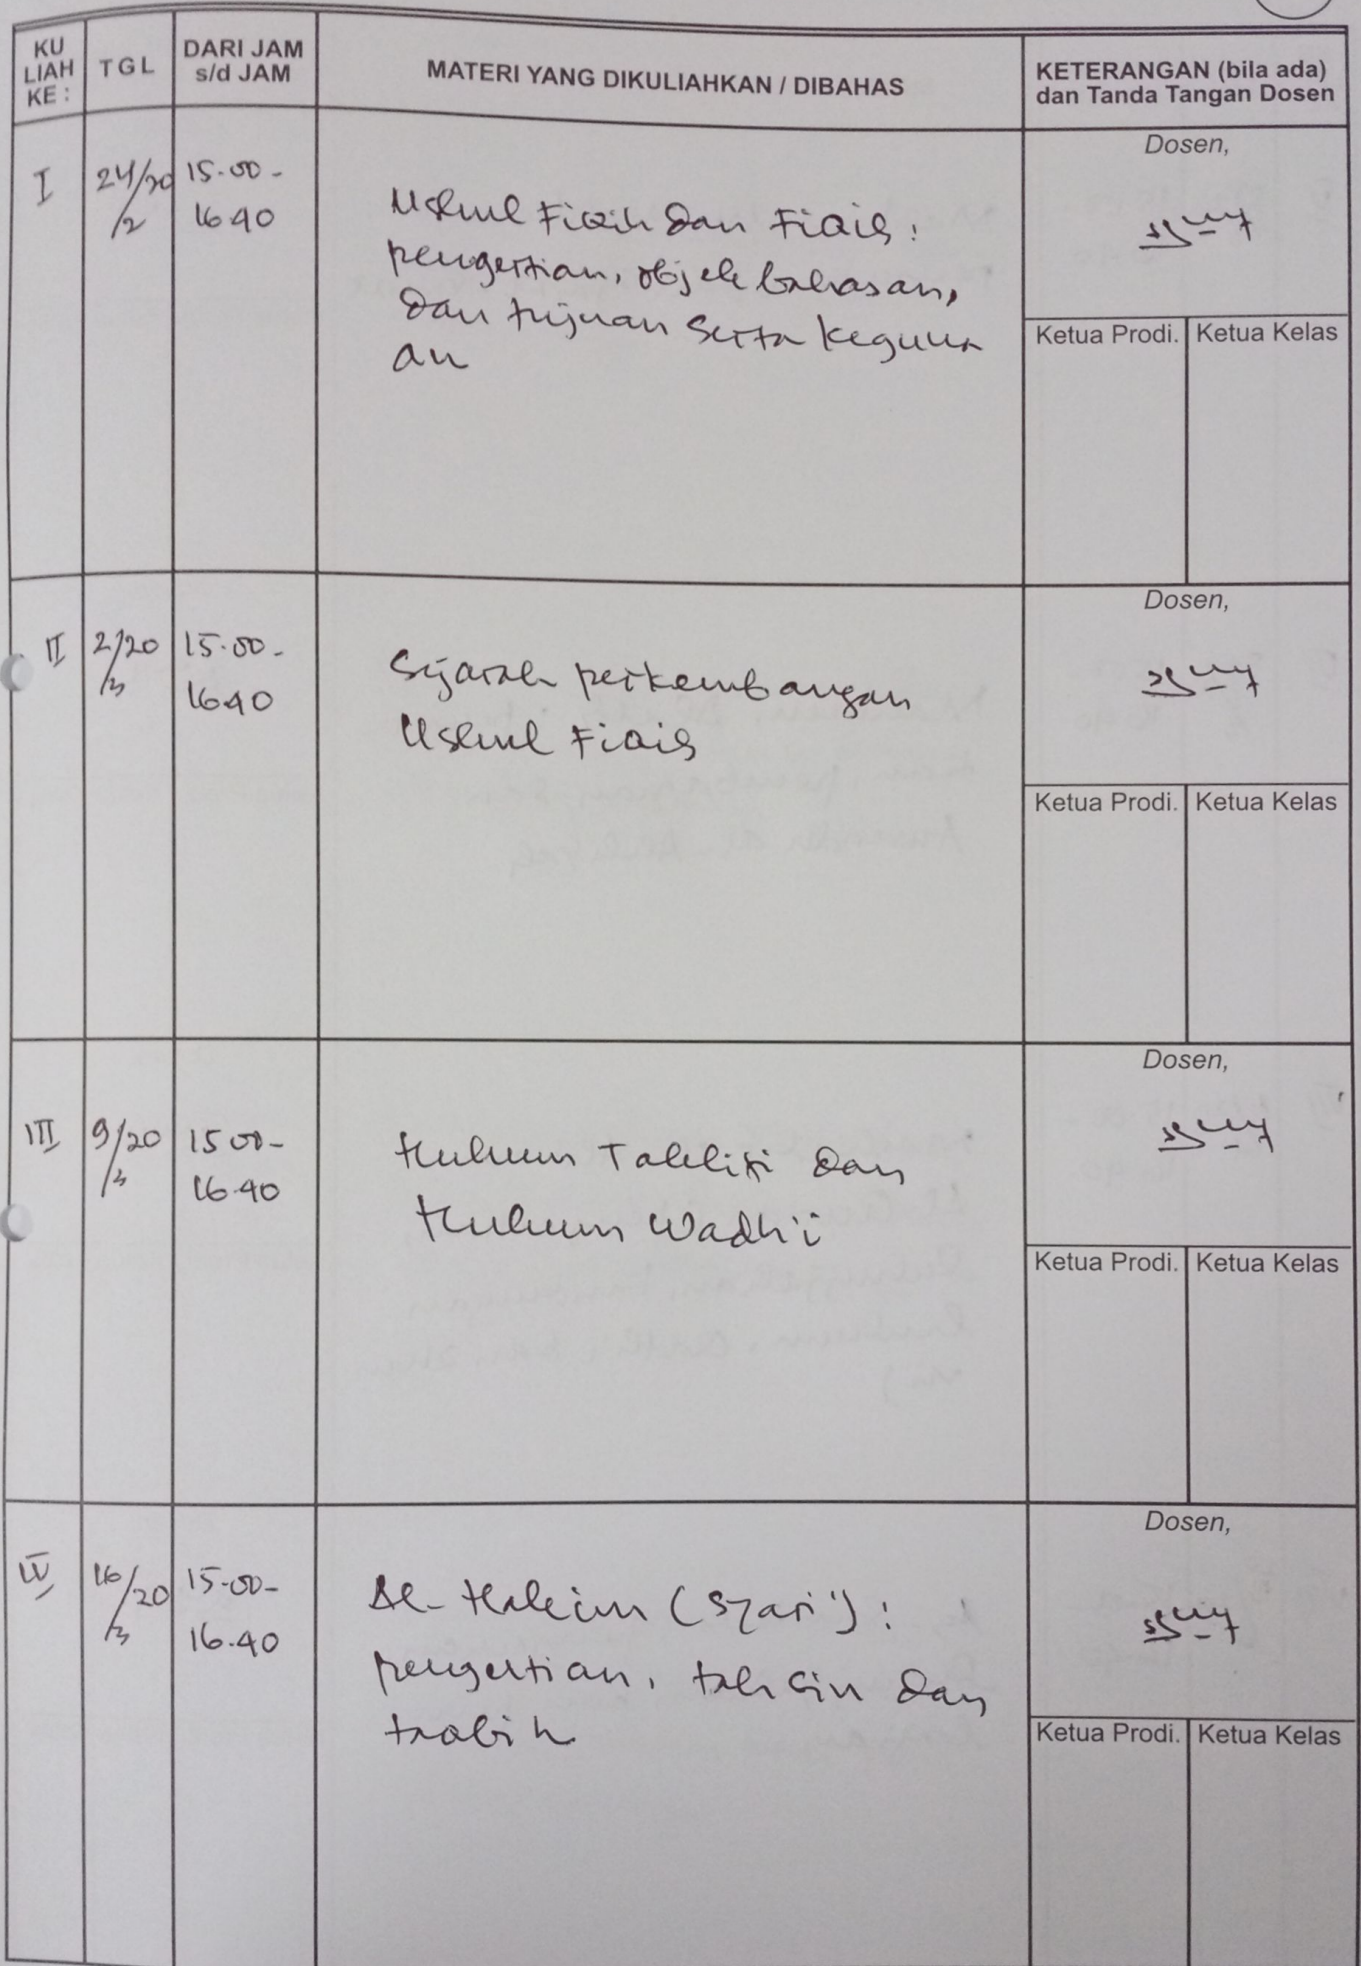 KU LIAH KE :
TGL
DARI JAM s/d JAM
MATERI YANG DIKULIAHKAN / DIBAHAS
KETERANGAN (bila ada) dan Tanda Tangan Dosen
I
24/20
/2
15.00 -
16.40
Ushul Fiqih dan Fiqih :
pengertian, objek bahasan,
dan tujuan serta keguna
an
Dosen,
Ketua Prodi. Ketua Kelas
II
2/20
/3
15.00 -
16.40
Sejarah perkembangan
Ushul Fiqih
Dosen,
Ketua Prodi. Ketua Kelas
III
9/20
/3
15.00 -
16.40
Hukum Taklifi dan
Hukum Wadh'i
Dosen,
Ketua Prodi. Ketua Kelas
IV
16/20
/3
15.00 -
16.40
Al-Hakim (Syari') :
pengertian, tahsin dan
taqbih
Dosen,
Ketua Prodi. Ketua Kelas